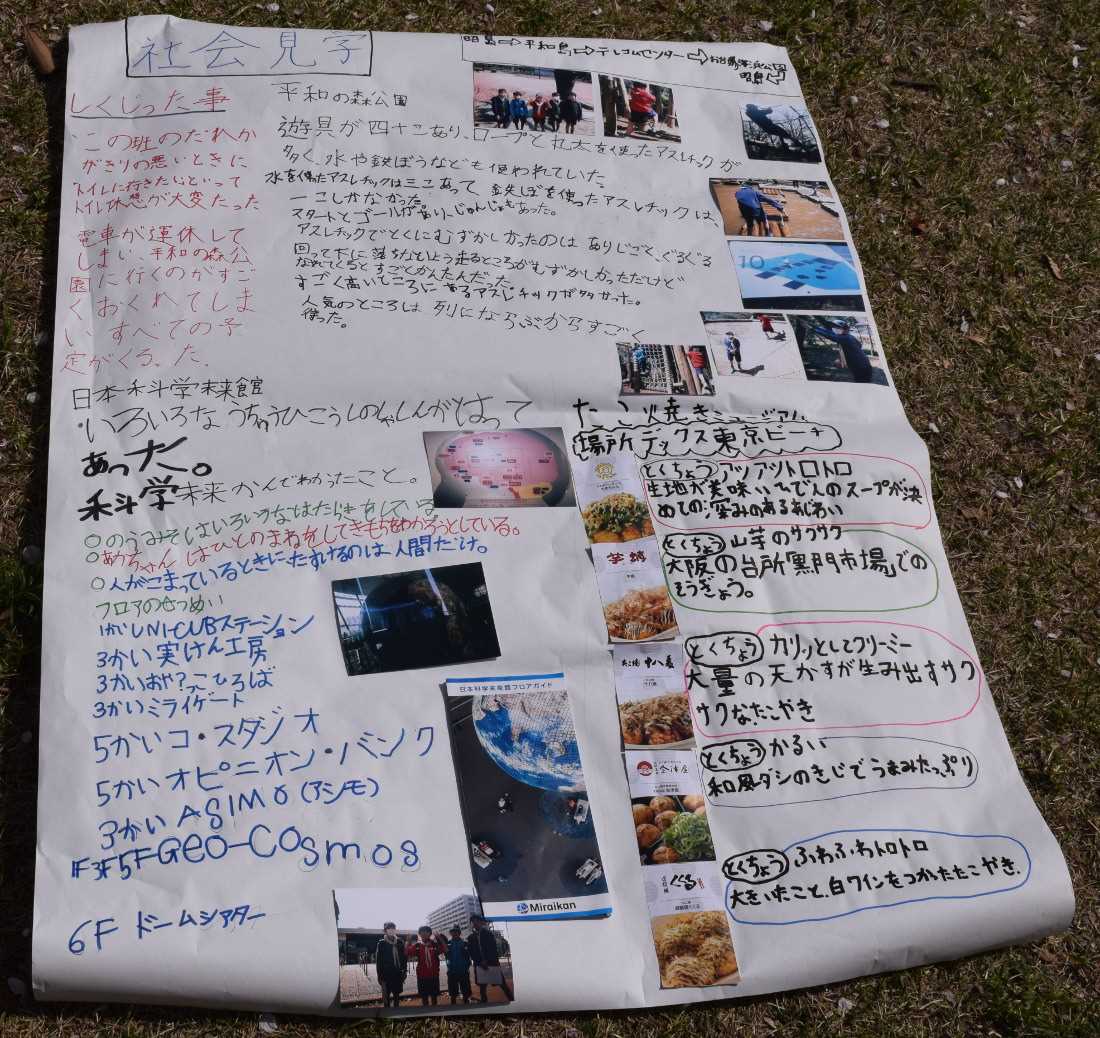 社会見学
昭島⇨平和島⇨テレコムセンター⇨お台場海浜公園
昭島
しくじった事
・この班のだれか
がきりの悪いときに、
トイレに行きたいといって
トイレ休憩が大変だった
電車が運休して
しまい、平和の森公
園に行くのがすご
くおくれてしま
い、すべての予
定がくるった.
平和の森公園
遊具が四十こあり、ロープと丸太を使ったアスレチックが
多く、水や鉄ぼうなども使われていた。
水を使たアスレチックは三こあって 鉄ぼを使ったアスレチックは、
一こしかなかった。
スタートとゴールがあり、じゅんじょもあった。
アスレチックでとくにむずかしかったのは ありじごと、ぐるぐる
回って下に落ちないよう走るところがむずかしかっただけど
なれてくるとすごくかんたんだった。
すごく高いところにあるアスレチックが多かった。
人気のところは 列にならぶからすごく
待った。
10
日本科学未来館
・いろいろな うちゅうひこうしのしゃしんがはって
あった。
科学未来かんでわかったこと。
○のうみそはいろいろなはたらきをしている
○あかちゃんはひとのまねをしてきもちをわかろうとしている。
○人がこまっているときにたすけるのは人間だけ。
フロアのせつめい
1かいUNI-CUBステーション
3かい実けん工房
3かいおや?っこひろば
3かいミライゲート
5かいコ・スタジオ
5かいオピニオン・バンク
3かいASIMO(アシモ)
1F3F5FGeo-Cosmos
6F ドームシアター
日本科学未来館フロアガイド
Miraikan
たこ焼きミュージアム
場所デックス東京ビーチ
とくちょう アツアツトロトロ
生地が美味いひでんのスープが決
めての深みのあるあじあい
とくちょう 山芋のサクサク
大阪の台所「黒門市場」での
そうぎょう。
とくちょう カリッとしてクリーミー
大量の天かすが生み出すサク
サクなたこやき
とくちょう かるい
和風ダシのきじでうまみたっぷり
とくちょう ふわふわトロトロ
大きいたこと、白ワインをつかたたこやき.
芋蛸
十八番
会津屋
くくる